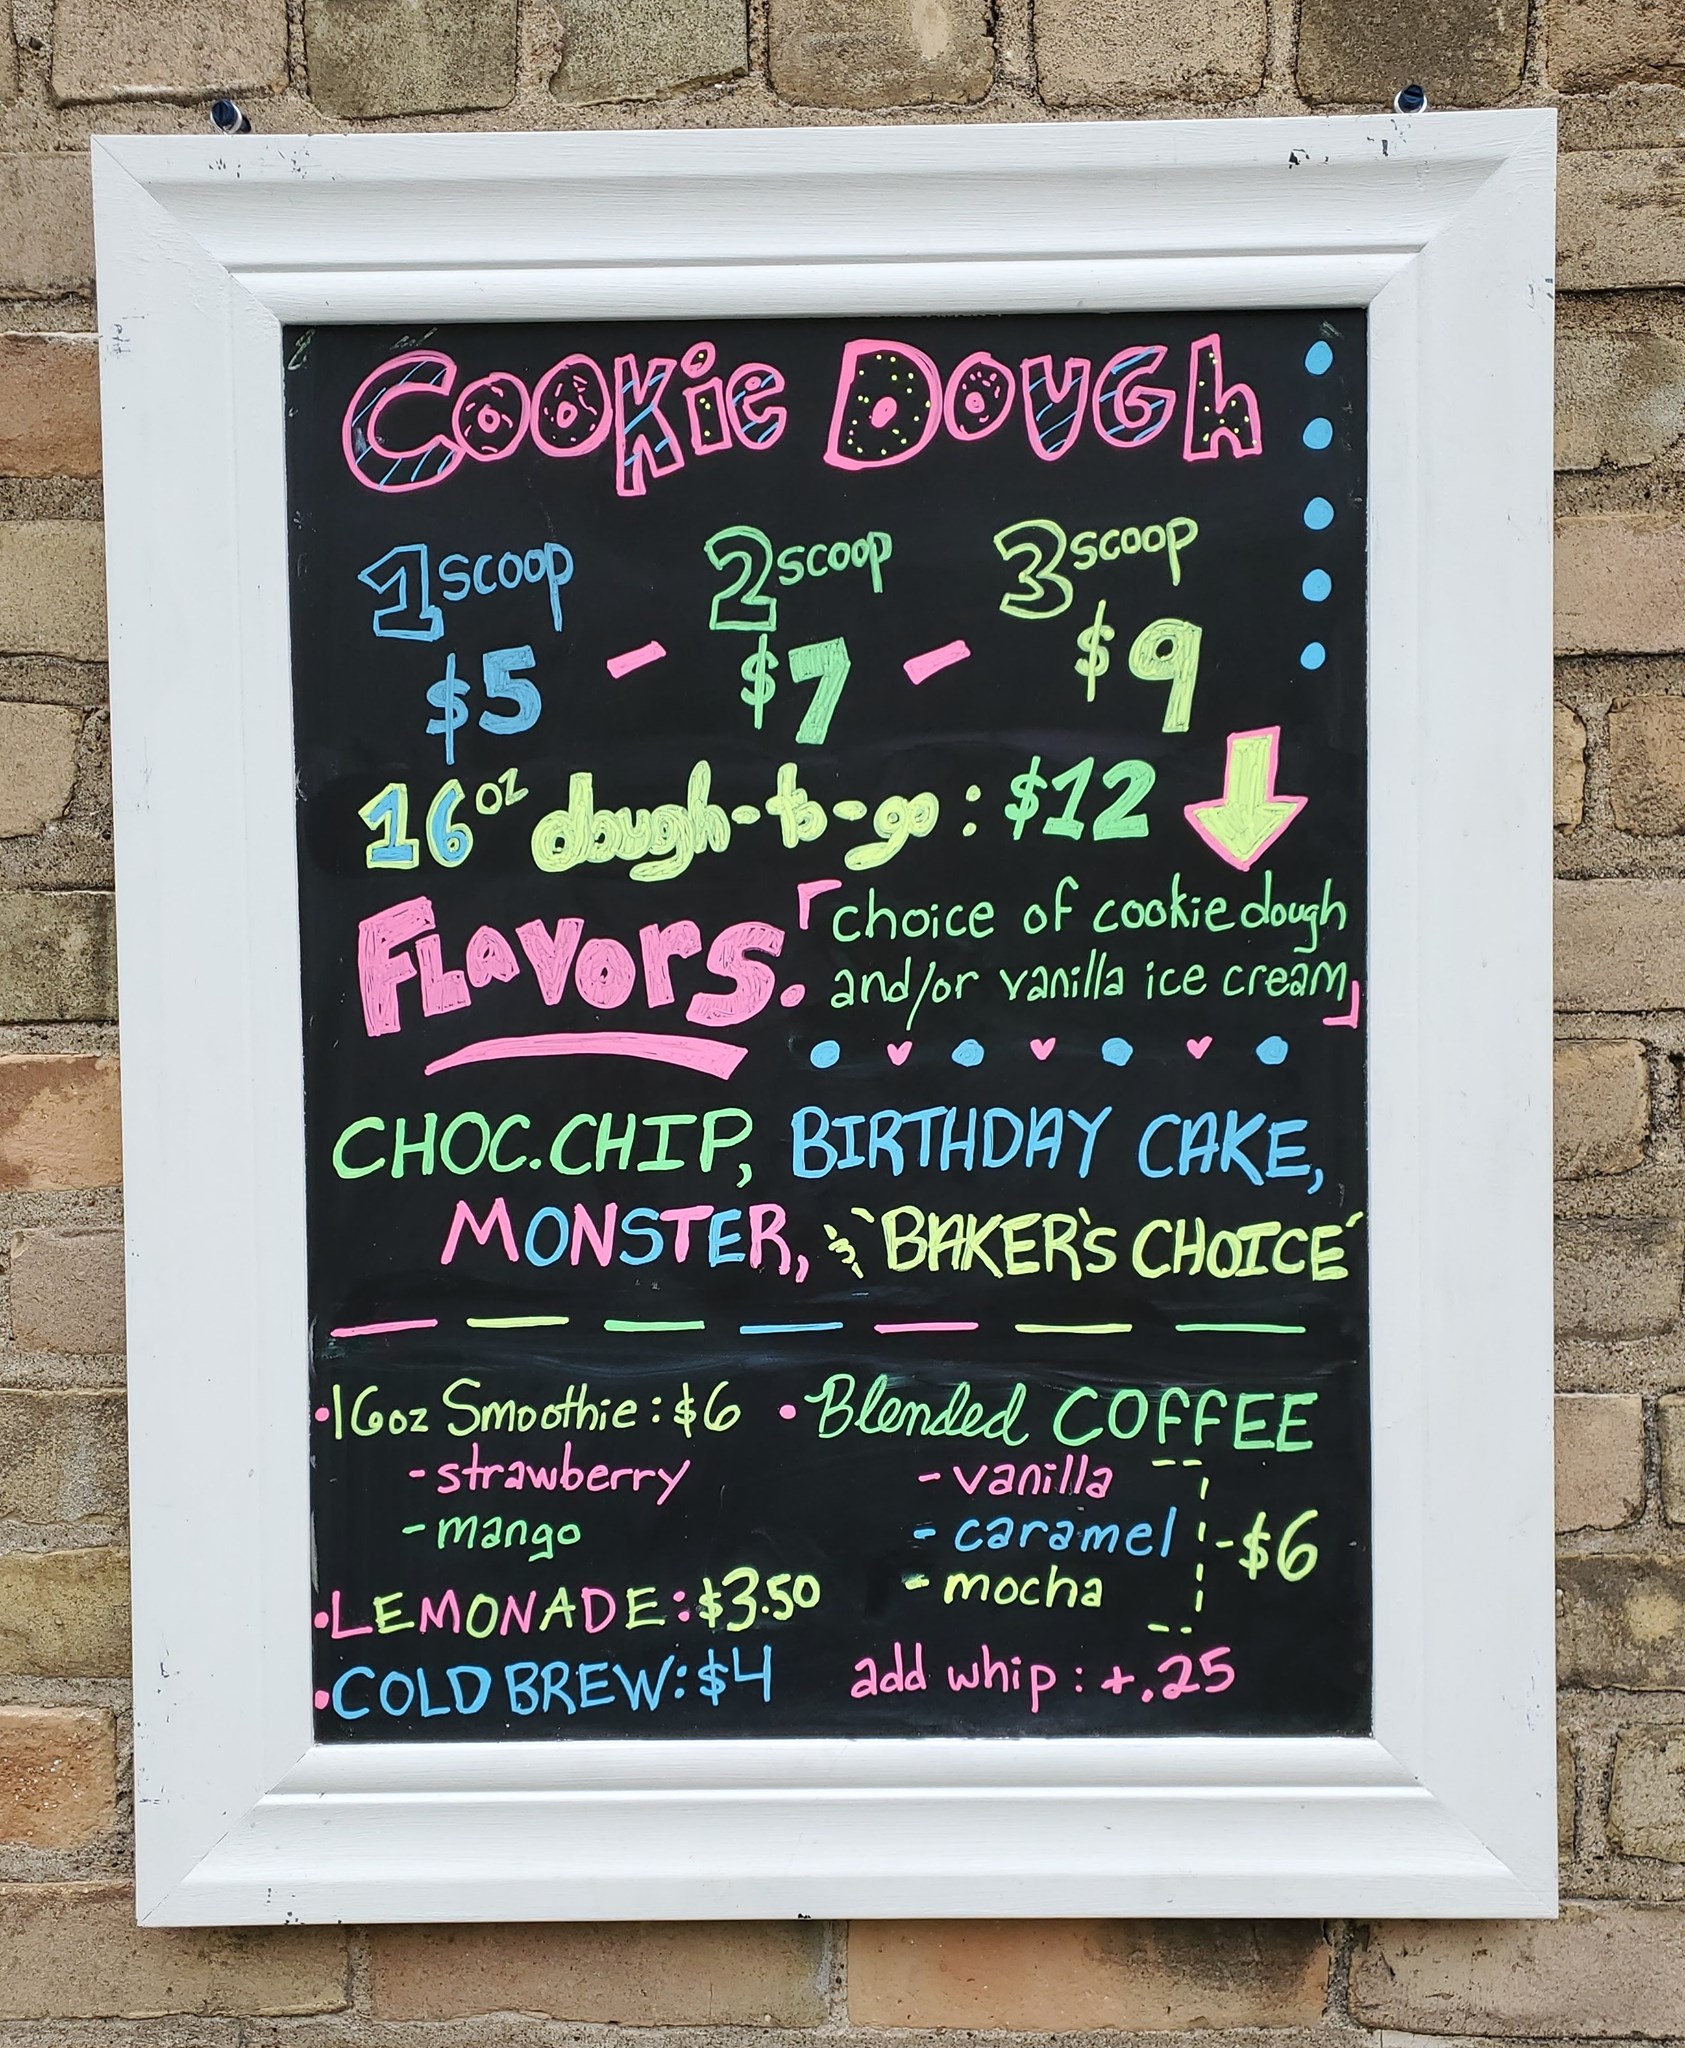 Cookie Dough
1 scoop 2 scoop 3 scoop
$5 - $7 - $9
16oz dough-to-go: $12
Flavors. choice of cookie dough
and/or vanilla ice cream
CHOC.CHIP, BIRTHDAY CAKE,
MONSTER, & "BAKER'S CHOICE"
•16oz Smoothie: $6 •Blended COFFEE
-strawberry -vanilla
-mango -caramel -$6
-mocha
•LEMONADE: $3.50
•COLD BREW: $4 add whip: +.25